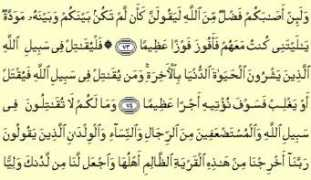 وَلَئِنْ أَصَـٰبَكُمْ فَضْلٌ مِّنَ ٱللَّهِ لَيَقُولَنَّ كَأَن لَّمْ تَكُنۢ بَيْنَكُمْ وَبَيْنَهُۥ مَوَدَّةٌ
يَـٰلَيْتَنِى كُنتُ مَعَهُمْ فَأَفُوزَ فَوْزًا عَظِيمًا ٧٣ ۞ فَلْيُقَـٰتِلْ فِى سَبِيلِ ٱللَّهِ
ٱلَّذِينَ يَشْرُونَ ٱلْحَيَوٰةَ ٱلدُّنْيَا بِٱلْـَٔاخِرَةِ ۚ وَمَن يُقَـٰتِلْ فِى سَبِيلِ ٱللَّهِ فَيُقْتَلْ
أَوْ يَغْلِبْ فَسَوْفَ نُؤْتِيهِ أَجْرًا عَظِيمًا ٧٤ وَمَا لَكُمْ لَا تُقَـٰتِلُونَ فِى
سَبِيلِ ٱللَّهِ وَٱلْمُسْتَضْعَفِينَ مِنَ ٱلرِّجَالِ وَٱلنِّسَآءِ وَٱلْوِلْدَٰنِ ٱلَّذِينَ يَقُولُونَ
رَبَّنَآ أَخْرِجْنَا مِنْ هَـٰذِهِ ٱلْقَرْيَةِ ٱلظَّالِمِ أَهْلُهَا وَٱجْعَل لَّنَا مِن لَّدُنكَ وَلِيًّا